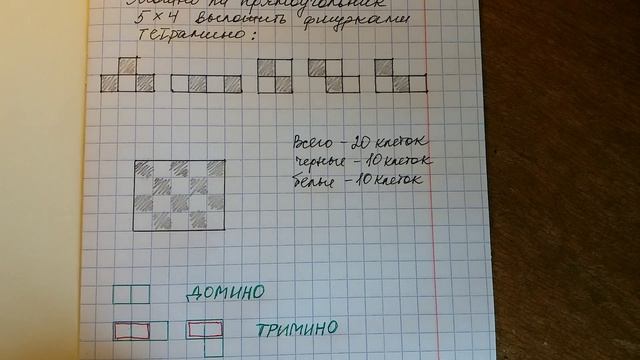 Можно ли прямоугольник
5×4 выложить фигурками
тетрамино:
Всего – 20 клеток
черные – 10 клеток
белые – 10 клеток
ДОМИНО
ТРИМИНО